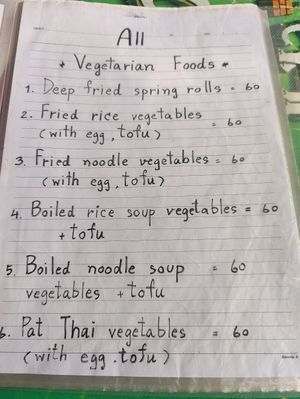 All
* Vegetarian Foods *
1. Deep fried spring rolls = 60
2. Fried rice vegetables = 60
(with egg, tofu)
3. Fried noodle vegetables = 60
(with egg, tofu)
4. Boiled rice soup vegetables = 60
+ tofu
5. Boiled noodle soup = 60
vegetables + tofu
6. Pat Thai vegetables = 60
(with egg.tofu)